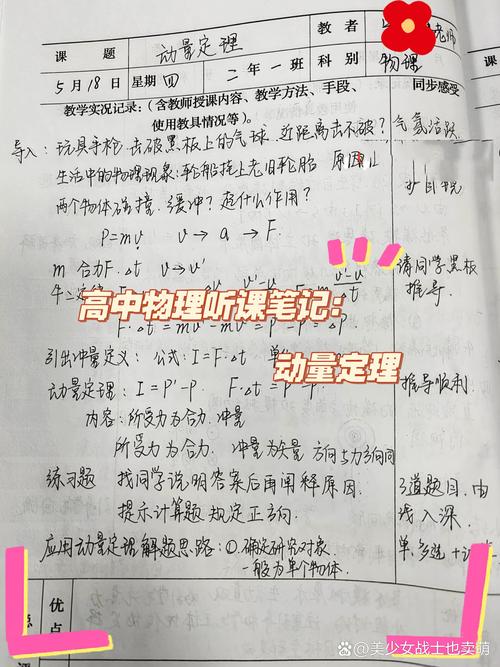 课题 动量定理 教者 老师
5月18日 星期四 二年一班 科别 物课
教学实况记录:(含教师授课内容、教学方法、手段、
使用教具情况等)。
同步感受
导入: 玩具手枪 击破黑板上的气球. 近距离击不破? 气氛活跃
生活中的物理现象: 轮船挂上老旧轮胎 原因
两个物体碰撞. 缓冲? 起什么作用?
P=mv v→a→F.
m 合力F.Δt v→v'
请同学黑板
推导.
牛二定律
v'-v
v'-v
Δt
高中物理听课笔记:
F.Δt=mv'-mv=P'-P=ΔP.
动量定理
引出冲量定义: 公式: I=F.Δt
动量定理: I=P'-P. F.Δt=P'-P. 推导顺利.
内容: 所受力为合力. 冲量
所受力为合力. 冲量为矢量 方向与力方向同
练习题 找同学说明答案后再阐释原因. 3道题目. 由
提示计算题 规定正方向. 浅入深.
应用动量定理解题思路: ①. 确定研究对象. 单.多选+
一般为单个物体.
优
点
@美少女战士也卖萌